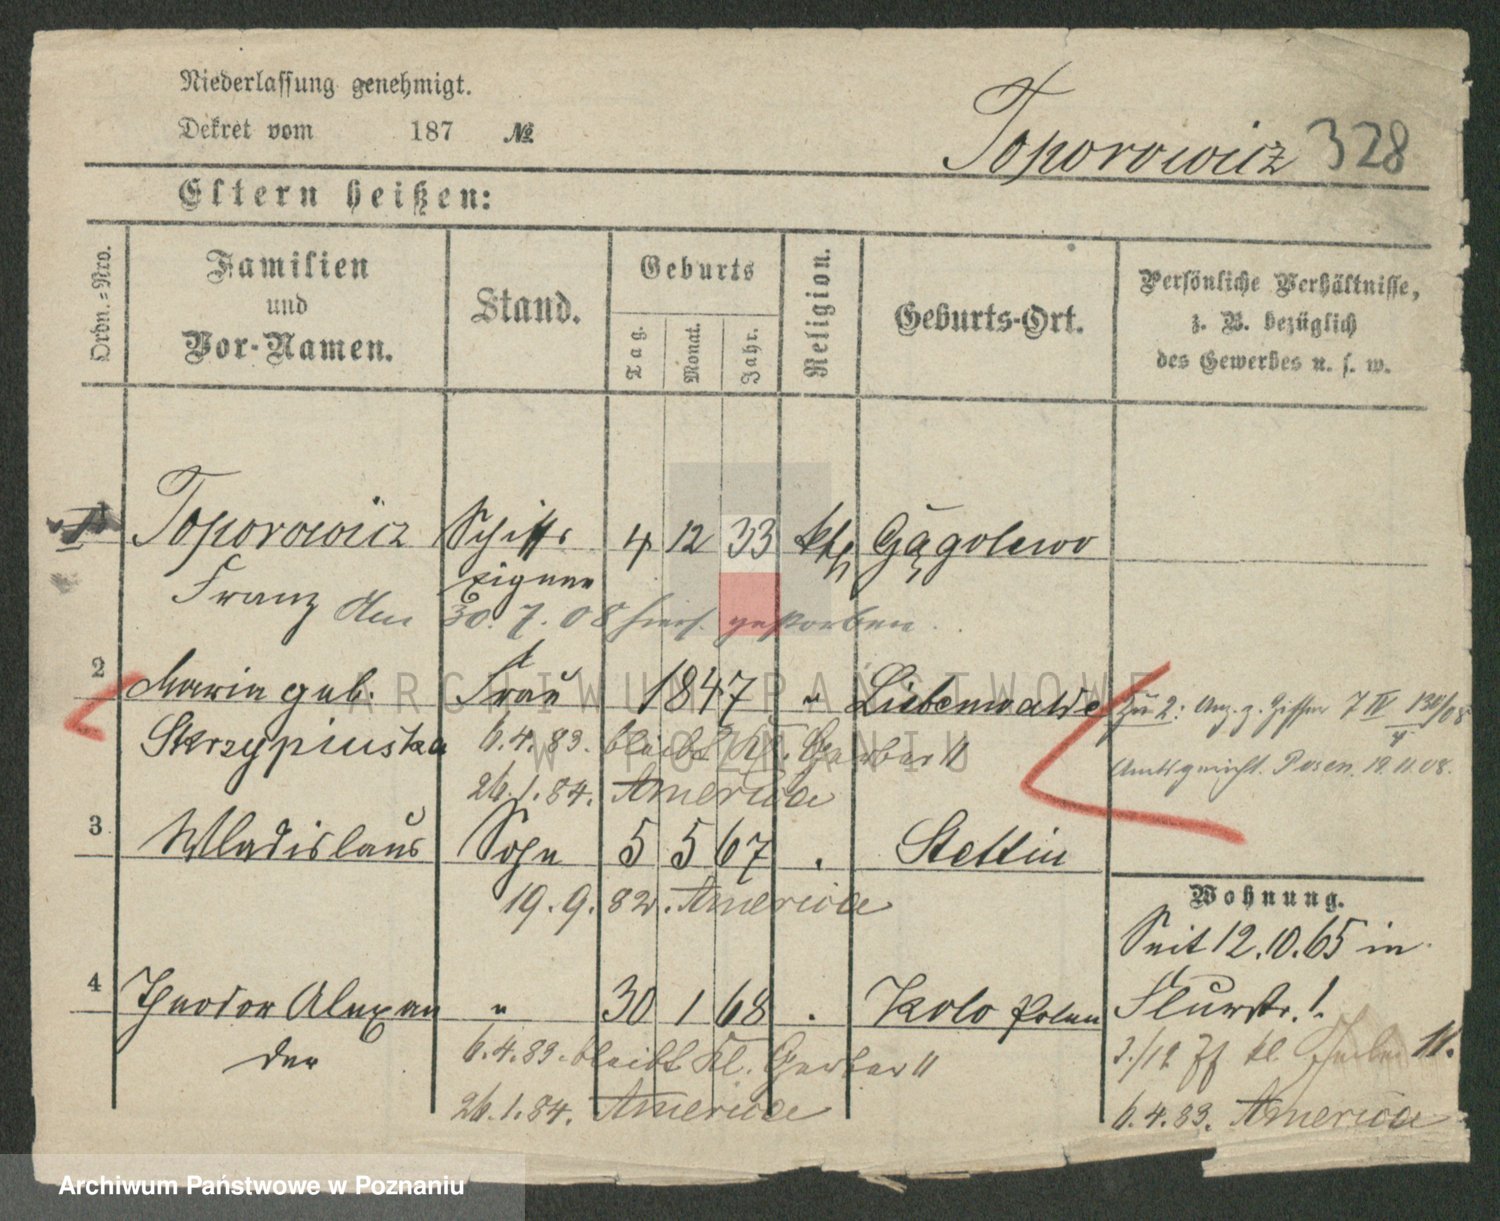 Niederlassung genehmigt.
Dekret vom 187 №
Toporowicz 328
Eltern heißen:
Ordn.=Nro.
Familien
und
Vor-Namen.
Stand.
Geburts
Tag.
Monat.
Jahr.
Religion.
Geburts-Ort.
Persönliche Verhältnisse,
z. B. bezüglich
des Gewerbes u. s. w.
1 Toporowicz Schiffs 4 12 33 kth Gągolewo
Franz Eigner
Am 30.7.08 hiers. gestorben.
2 Maria geb. Frau 1847 " Liebenwalde
Skrzypinska 6.4.83. bleibt Kl. Gerber 11
26.1.84. Amerika
Zu 2: 7 IV
Amtsgericht Posen. 19.11.08.
3 Wladislaus Sohn 5 5 67 . Stettin
19.9.82. Amerika
4 Theodor Alexan " 30 1 68 . Kolo Polen
der 6.4.83. bleibt Kl. Gerber 11
26.1.84. Amerika
Wohnung.
Seit 12.10.65 in
Flurstr. 1.
kl. Gerber 11.
6.4.83. Amerika
ARCHIWUM PAŃSTWOWE
W POZNANIU
Archiwum Państwowe w Poznaniu